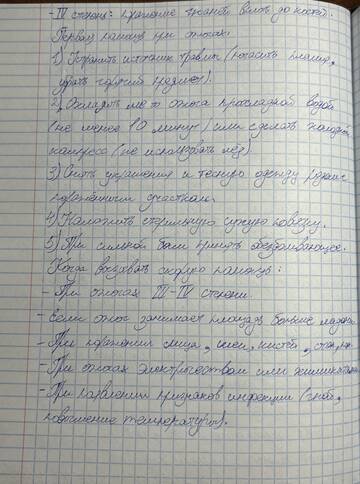 - IV степень: поражение тканей вплоть до костей.
Первая помощь при ожогах:
1) Устранить источник травмы (погасить пламя,
убрать горячий предмет).
2) Охладить место ожога прохладной водой
(не менее 10 минут) или сделать холодный
компресс (не использовать лёд)
3) Снять украшения и тесную одежду рядом с
поражённым участком.
4) Наложить стерильную сухую повязку.
5) При сильной боли принять обезболивающее.
Когда вызывать скорую помощь:
- При ожогах III-IV степени.
- Если ожог занимает площадь больше ладони
- При поражении лица, шеи, кистей, стоп,
- При ожогах электричеством или химикатами
- При появлении признаков инфекции (гной,
повышение температуры).